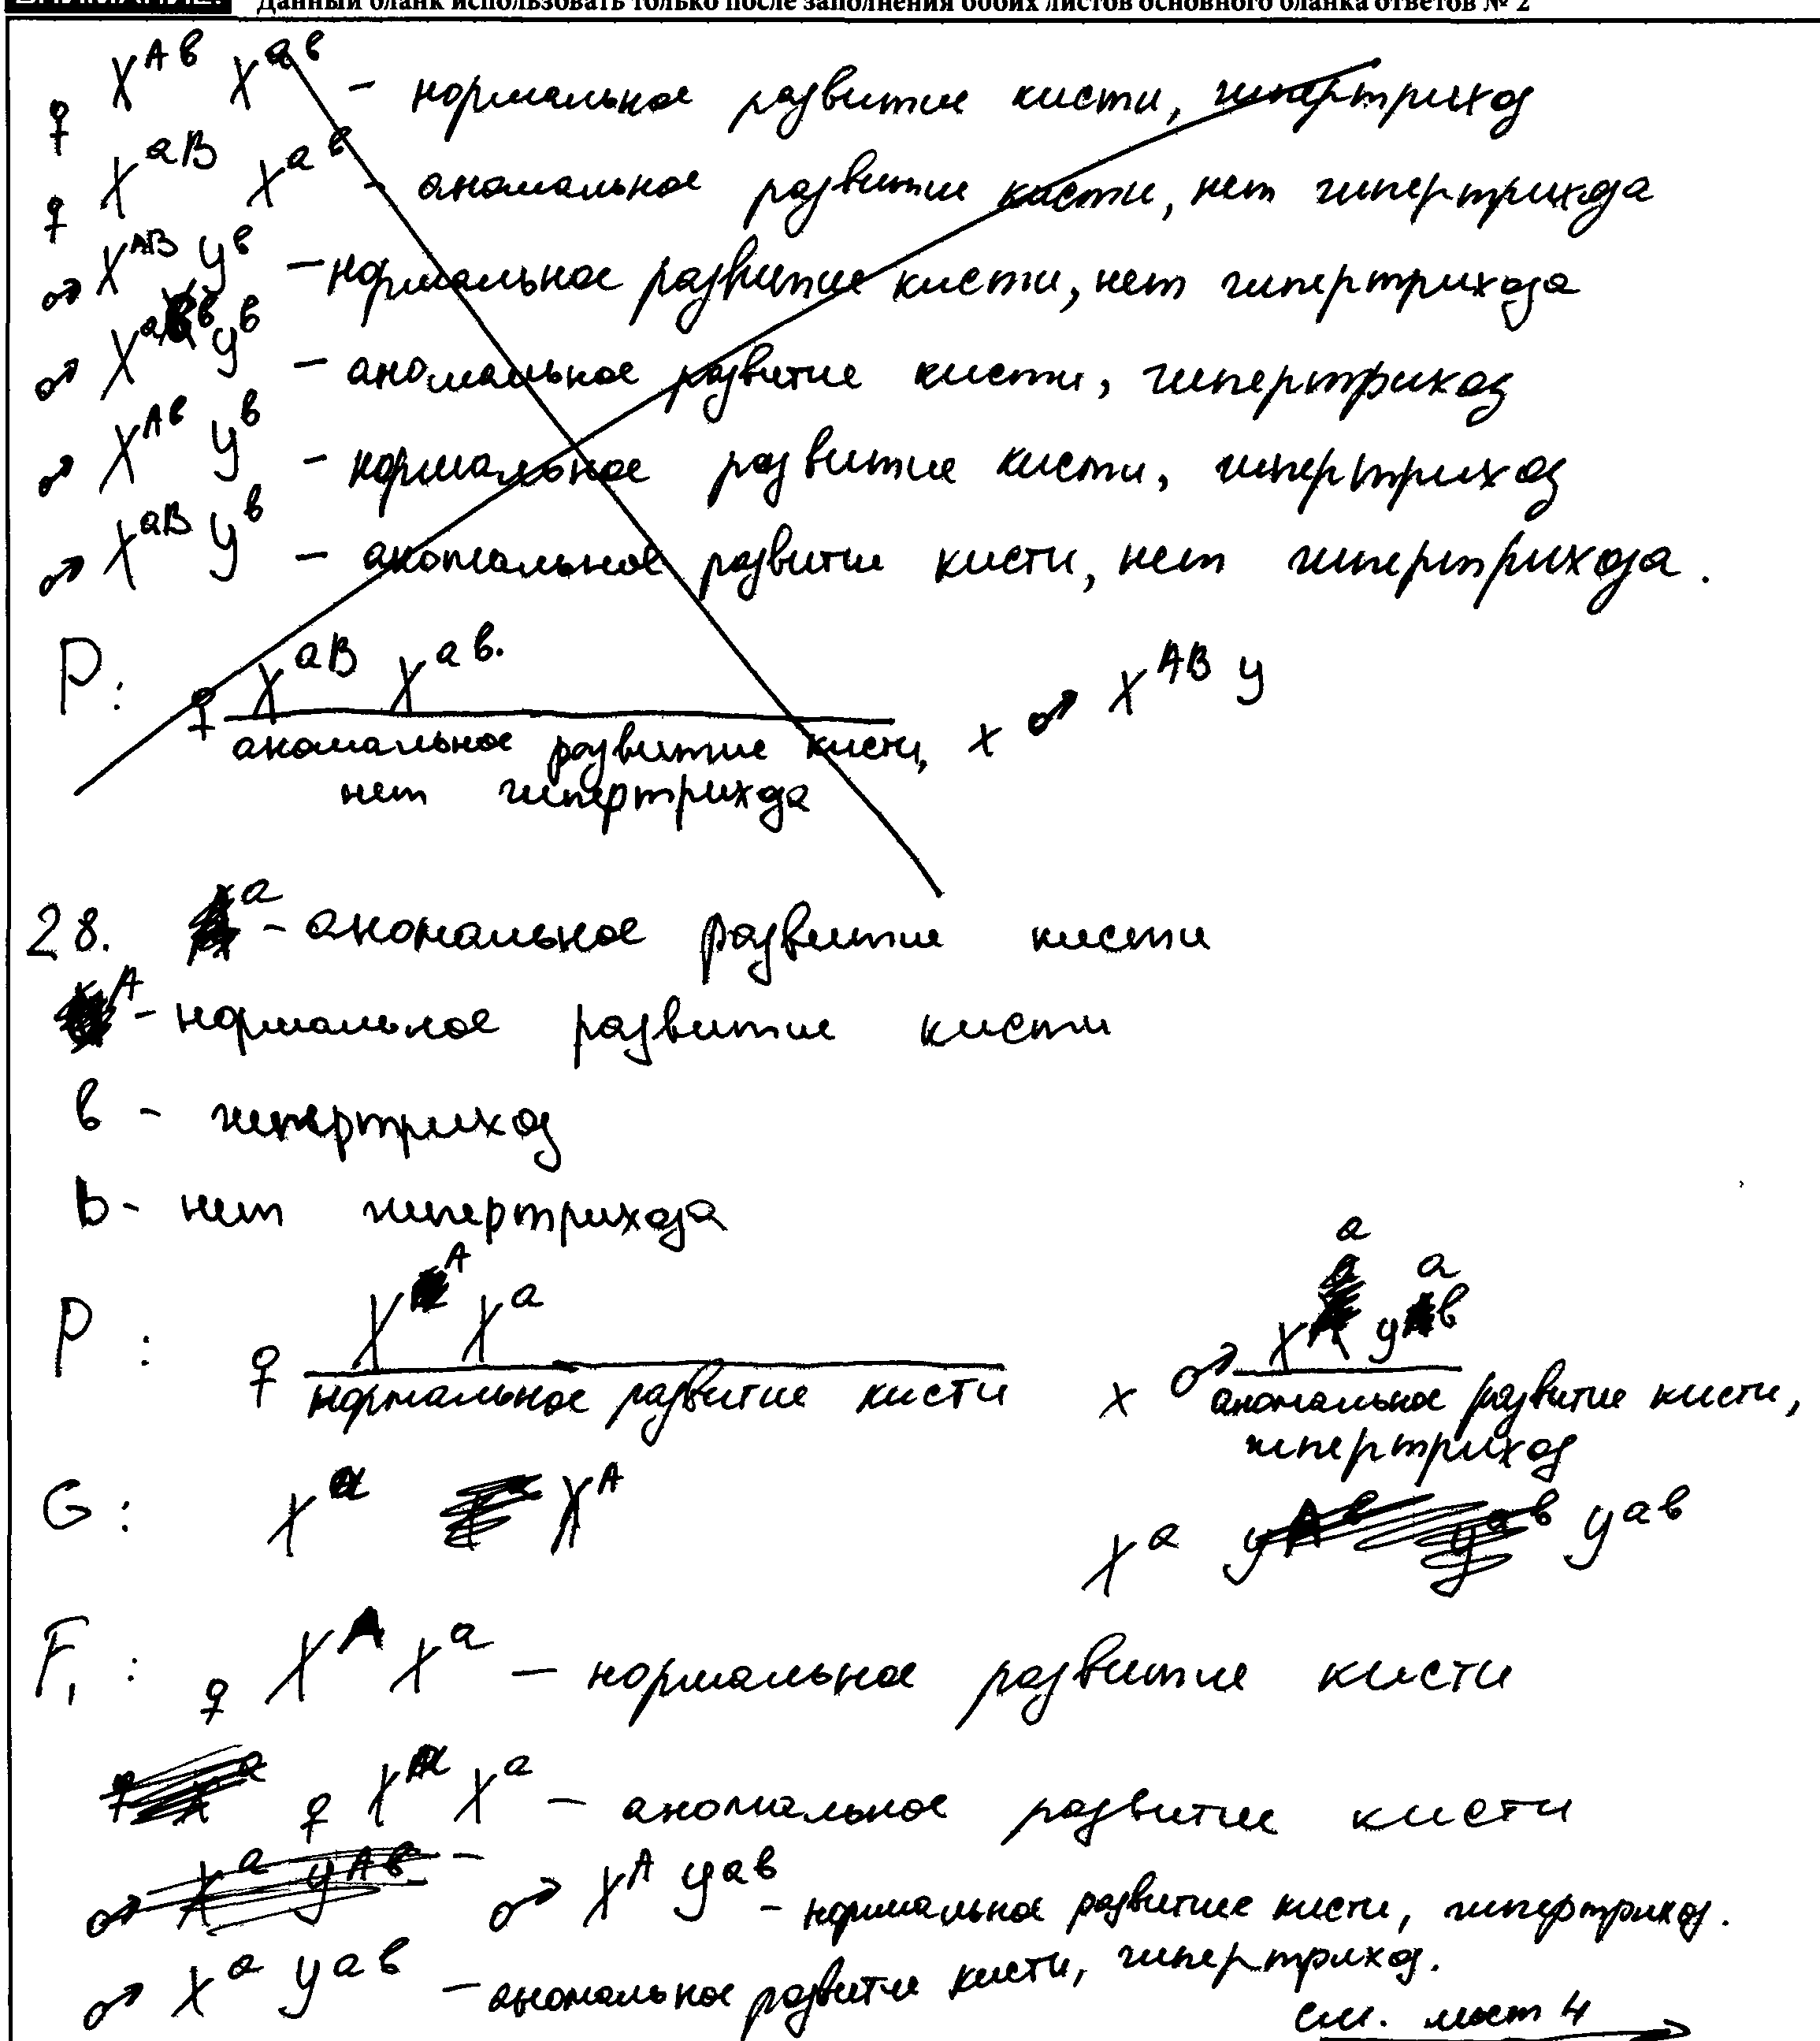 Данный бланк использовать только после заполнения обоих листов основного бланка ответов № 2
♀ X^Ав X^ав – нормальное развитие кисти, гипертрихоз
♀ X^аВ X^ав – аномальное развитие кисти, нет гипертрихоза
♂ X^АВ У^в – нормальное развитие кисти, нет гипертрихоза
♂ X^ав У^в – аномальное развитие кисти, гипертрихоз
♂ X^Ав У^в – нормальное развитие кисти, гипертрихоз
♂ X^аВ У^в – аномальное развитие кисти, нет гипертрихоза.
P: ♀ X^аВ X^ав. x ♂ X^АВ У
аномальное развитие кисти,
нет гипертрихоза
28. а – аномальное развитие кисти
А – нормальное развитие кисти
в – гипертрихоз
В – нет гипертрихоза
P: ♀ X^А X^а x ♂ X^а У^ав
нормальное развитие кисти аномальное развитие кисти,
гипертрихоз
G: X^а X^А X^а У^ав
F₁: ♀ X^А X^а – нормальное развитие кисти
♀ X^а X^а – аномальное развитие кисти
♂ X^А У^ав – нормальное развитие кисти, гипертрихоз.
♂ X^а У^ав – аномальное развитие кисти, гипертрихоз.
см. лист 4